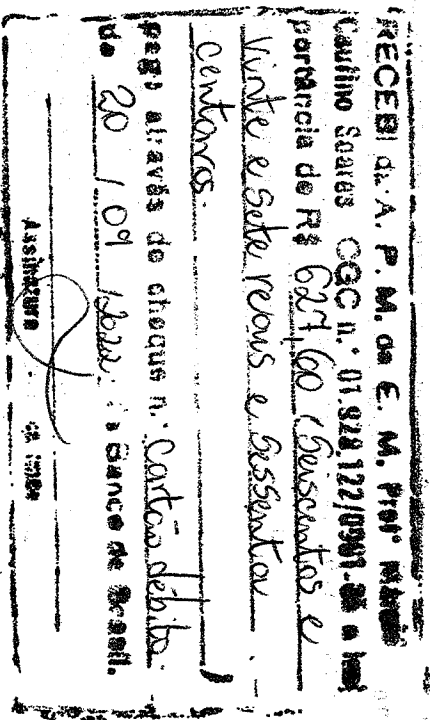 RECEBI da A. P. M. da E. M. Profª
Soares CGC n.° a
portância de R$ 627,60 (Seiscentos e
Vinte e Sete reais e Sessenta
centavos.
pago através do cheque n.° Cartão débito.
de 20 / 09 / 2022 Banco do Brasil.
Assinatura